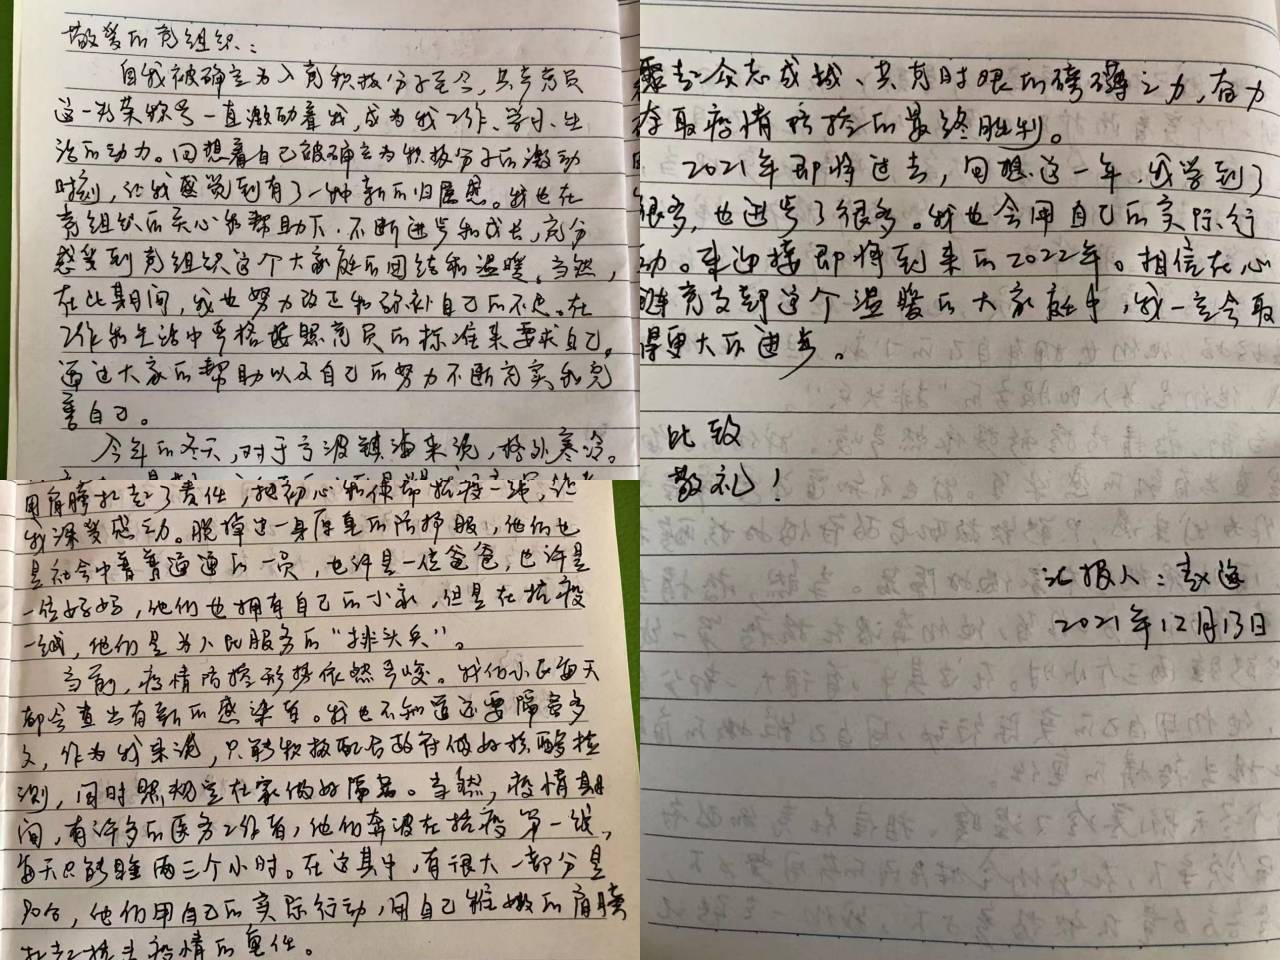 敬爱的党组织：
自我被确立为入党积极分子至今，共产党员
这一光荣称号一直激励着我，成为我工作、学习、生
活的动力。回想着自己被确立为积极分子的激动
时刻，让我感觉到有了一种新的归属感。我也在
党组织的关心和帮助下，不断进步和成长，充分
感受到党组织这个大家庭的团结和温暖。当然，
在此期间，我也努力改正和弥补自己的不足。在
工作和生活中严格按照党员的标准来要求自己，
通过大家的帮助以及自己的努力不断充实和完
善自己。
今年的冬天，对于宁波镇海来说，格外寒冷。
用肩膀扛起了责任，把初心和使命抗疫一线，让
我深受感动。脱掉这一身厚重的防护服，他们也
是社会中普普通通的一员，也许是一位爸爸，也许是
一位妈妈，他们也拥有自己的小家，但是在抗疫
一线，他们是为人民服务的“排头兵”。
当前，疫情防控形势依然严峻。我们小区每天
都会查出有新的感染者。我也不知道还要隔离多
久，作为我来说，只能积极配合政府做好核酸检
测，同时照规定在家做好隔离。当然，疫情期
间，有许多的医务工作者，他们奔波在抗疫第一线，
每天只能睡两三个小时。在这其中，有很大一部分是
90后，他们用自己的实际行动，用自己稚嫩的肩膀
扛起抗击疫情的重任。
聚起众志成城、共克时艰的磅礴之力，奋力
夺取疫情防控的最终胜利。
2021年即将过去，回想这一年，我学到了
很多，也进步了很多。我也会用自己的实际行
动。来迎接即将到来的2022年。相信在心
血管党支部这个温暖的大家庭中，我一定会取
得更大的进步。
此致
敬礼！
汇报人：赵海
2021年12月13日